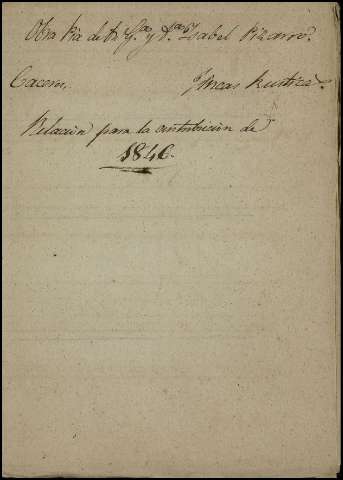 Obra Pia de Dn Gª y Dª Ysabel Pizarro.
Caceres, Fincas Rusticas.
Relacion para la contribucion de
1846.